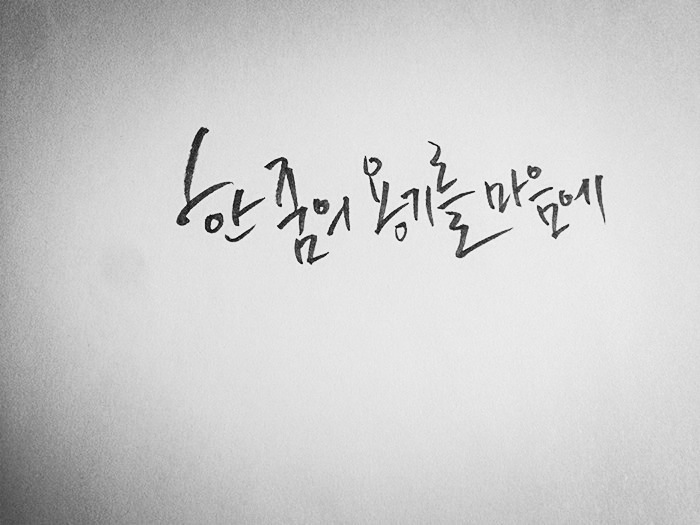 한 줌의 용기를 마음에